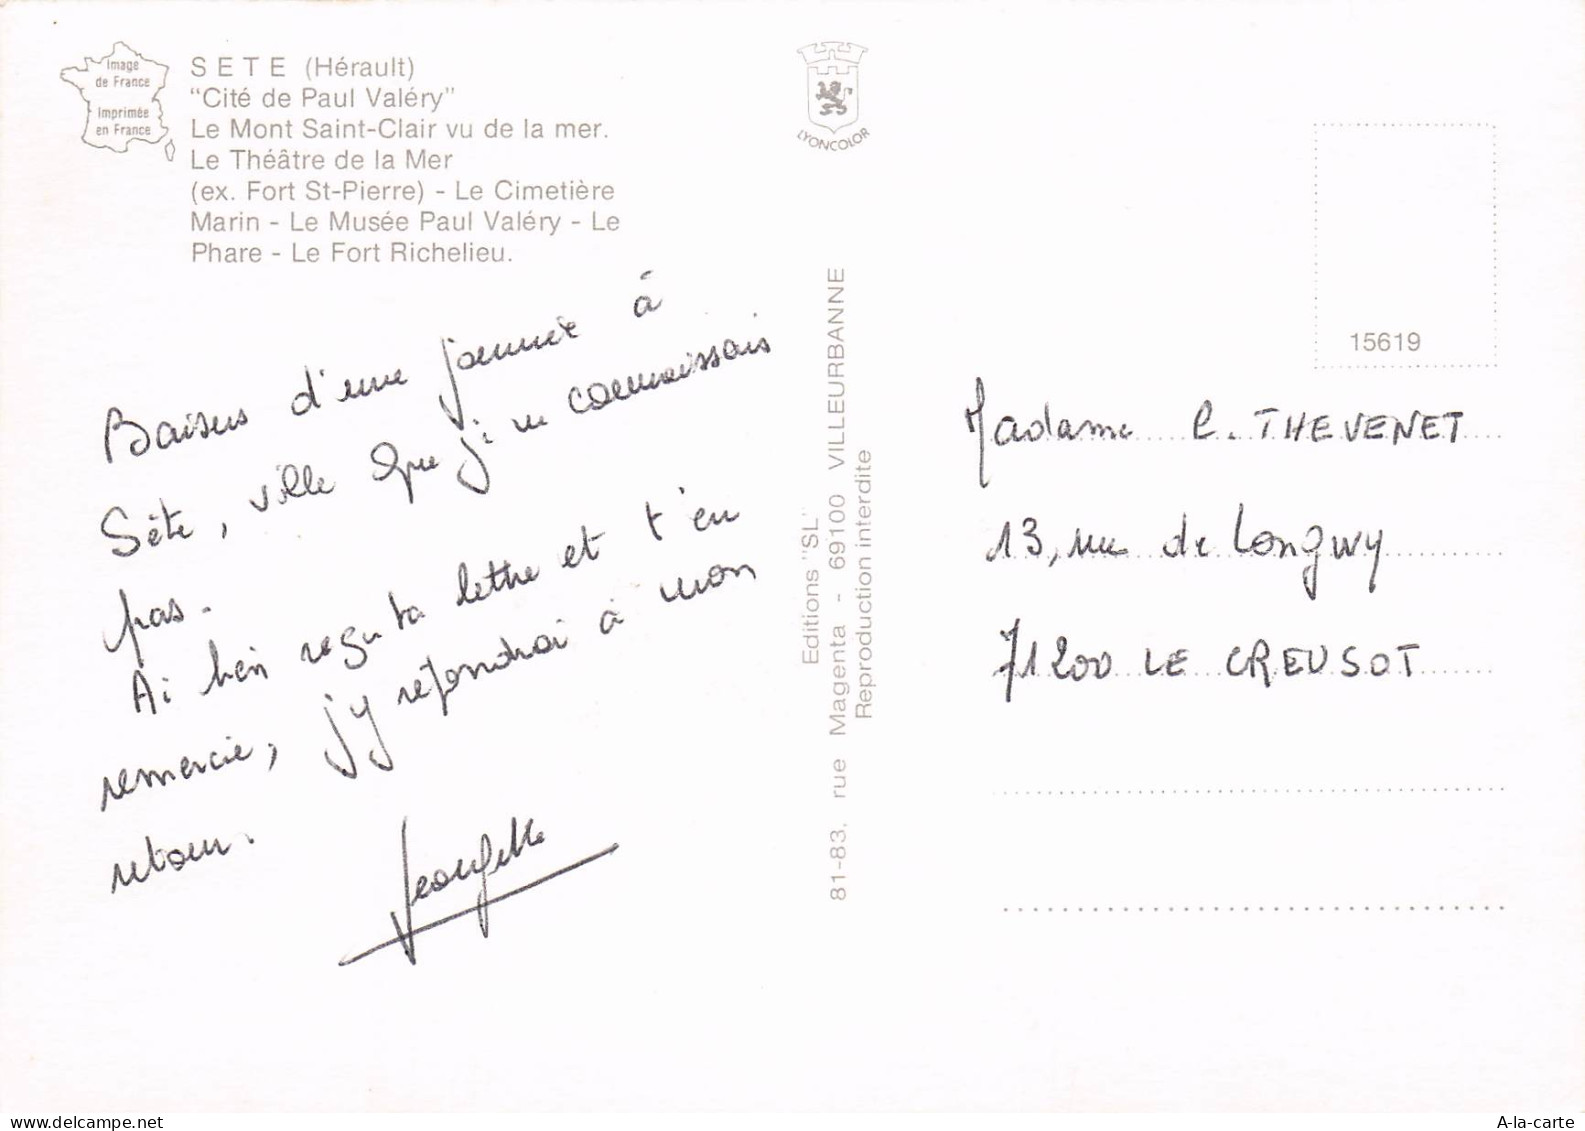 Image
de France
Imprimée
en France
SETE (Hérault)
"Cité de Paul Valéry"
Le Mont Saint-Clair vu de la mer.
Le Théâtre de la Mer
(ex. Fort St-Pierre) - Le Cimetière
Marin - Le Musée Paul Valéry - Le
Phare - Le Fort Richelieu.
Baisers d'une journée à
Sète, ville que je ne connaissais
pas.
Ai bien reçu ta lettre et t'en
remercie, j'y répondrai à mon
retour.
Georgette
LYONCOLOR
Editions "SL"
81-83, rue Magenta - 69100 VILLEURBANNE
Reproduction interdite
15619
Madame C. THEVENET
13, rue de Longwy
71200 LE CREUSOT
A-la-carte